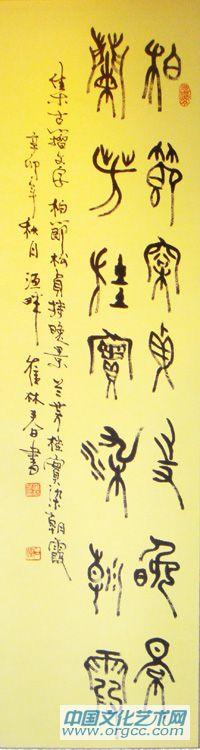 柏節松貞持晚景
蘭芬桂實染朝霞
集古籀文字 柏節松貞持晚景 兰芬桂實染朝霞
辛卯年秋月 崔林 書
中国文化艺术网
www.orgcc.com